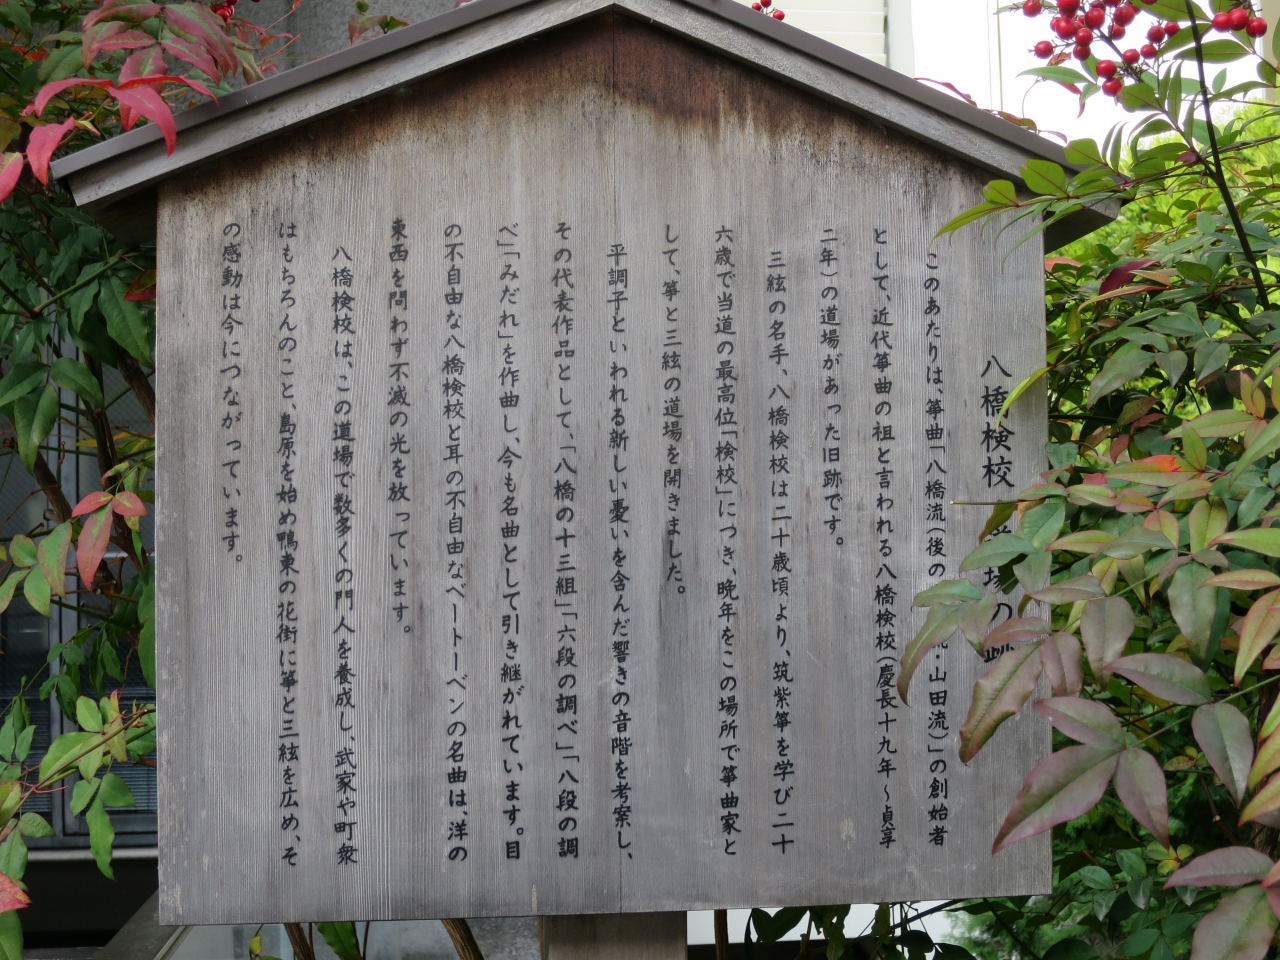 八橋検校 道場の跡
このあたりは、箏曲「八橋流(後の 流・山田流)」の創始者
として、近代箏曲の祖と言われる八橋検校(慶長十九年～貞享
二年)の道場があった旧跡です。
三絃の名手、八橋検校は二十歳頃より、筑紫箏を学び二十
六歳で当道の最高位「検校」につき、晩年をこの場所で箏曲家と
して、箏と三絃の道場を開きました。
平調子といわれる新しい憂いを含んだ響きの音階を考案し、
その代表作品として、「八橋の十三組」「六段の調べ」「八段の調
べ」「みだれ」を作曲し、今も名曲として引き継がれています。目
の不自由な八橋検校と耳の不自由なベートーベンの名曲は、洋の
東西を問わず不滅の光を放っています。
八橋検校は、この道場で数多くの門人を養成し、武家や町衆
はもちろんのこと、島原を始め鴨東の花街に箏と三絃を広め、そ
の感動は今につながっています。